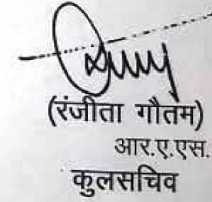 (रंजीता गौतम)
आर.ए.एस.
कुलसचिव